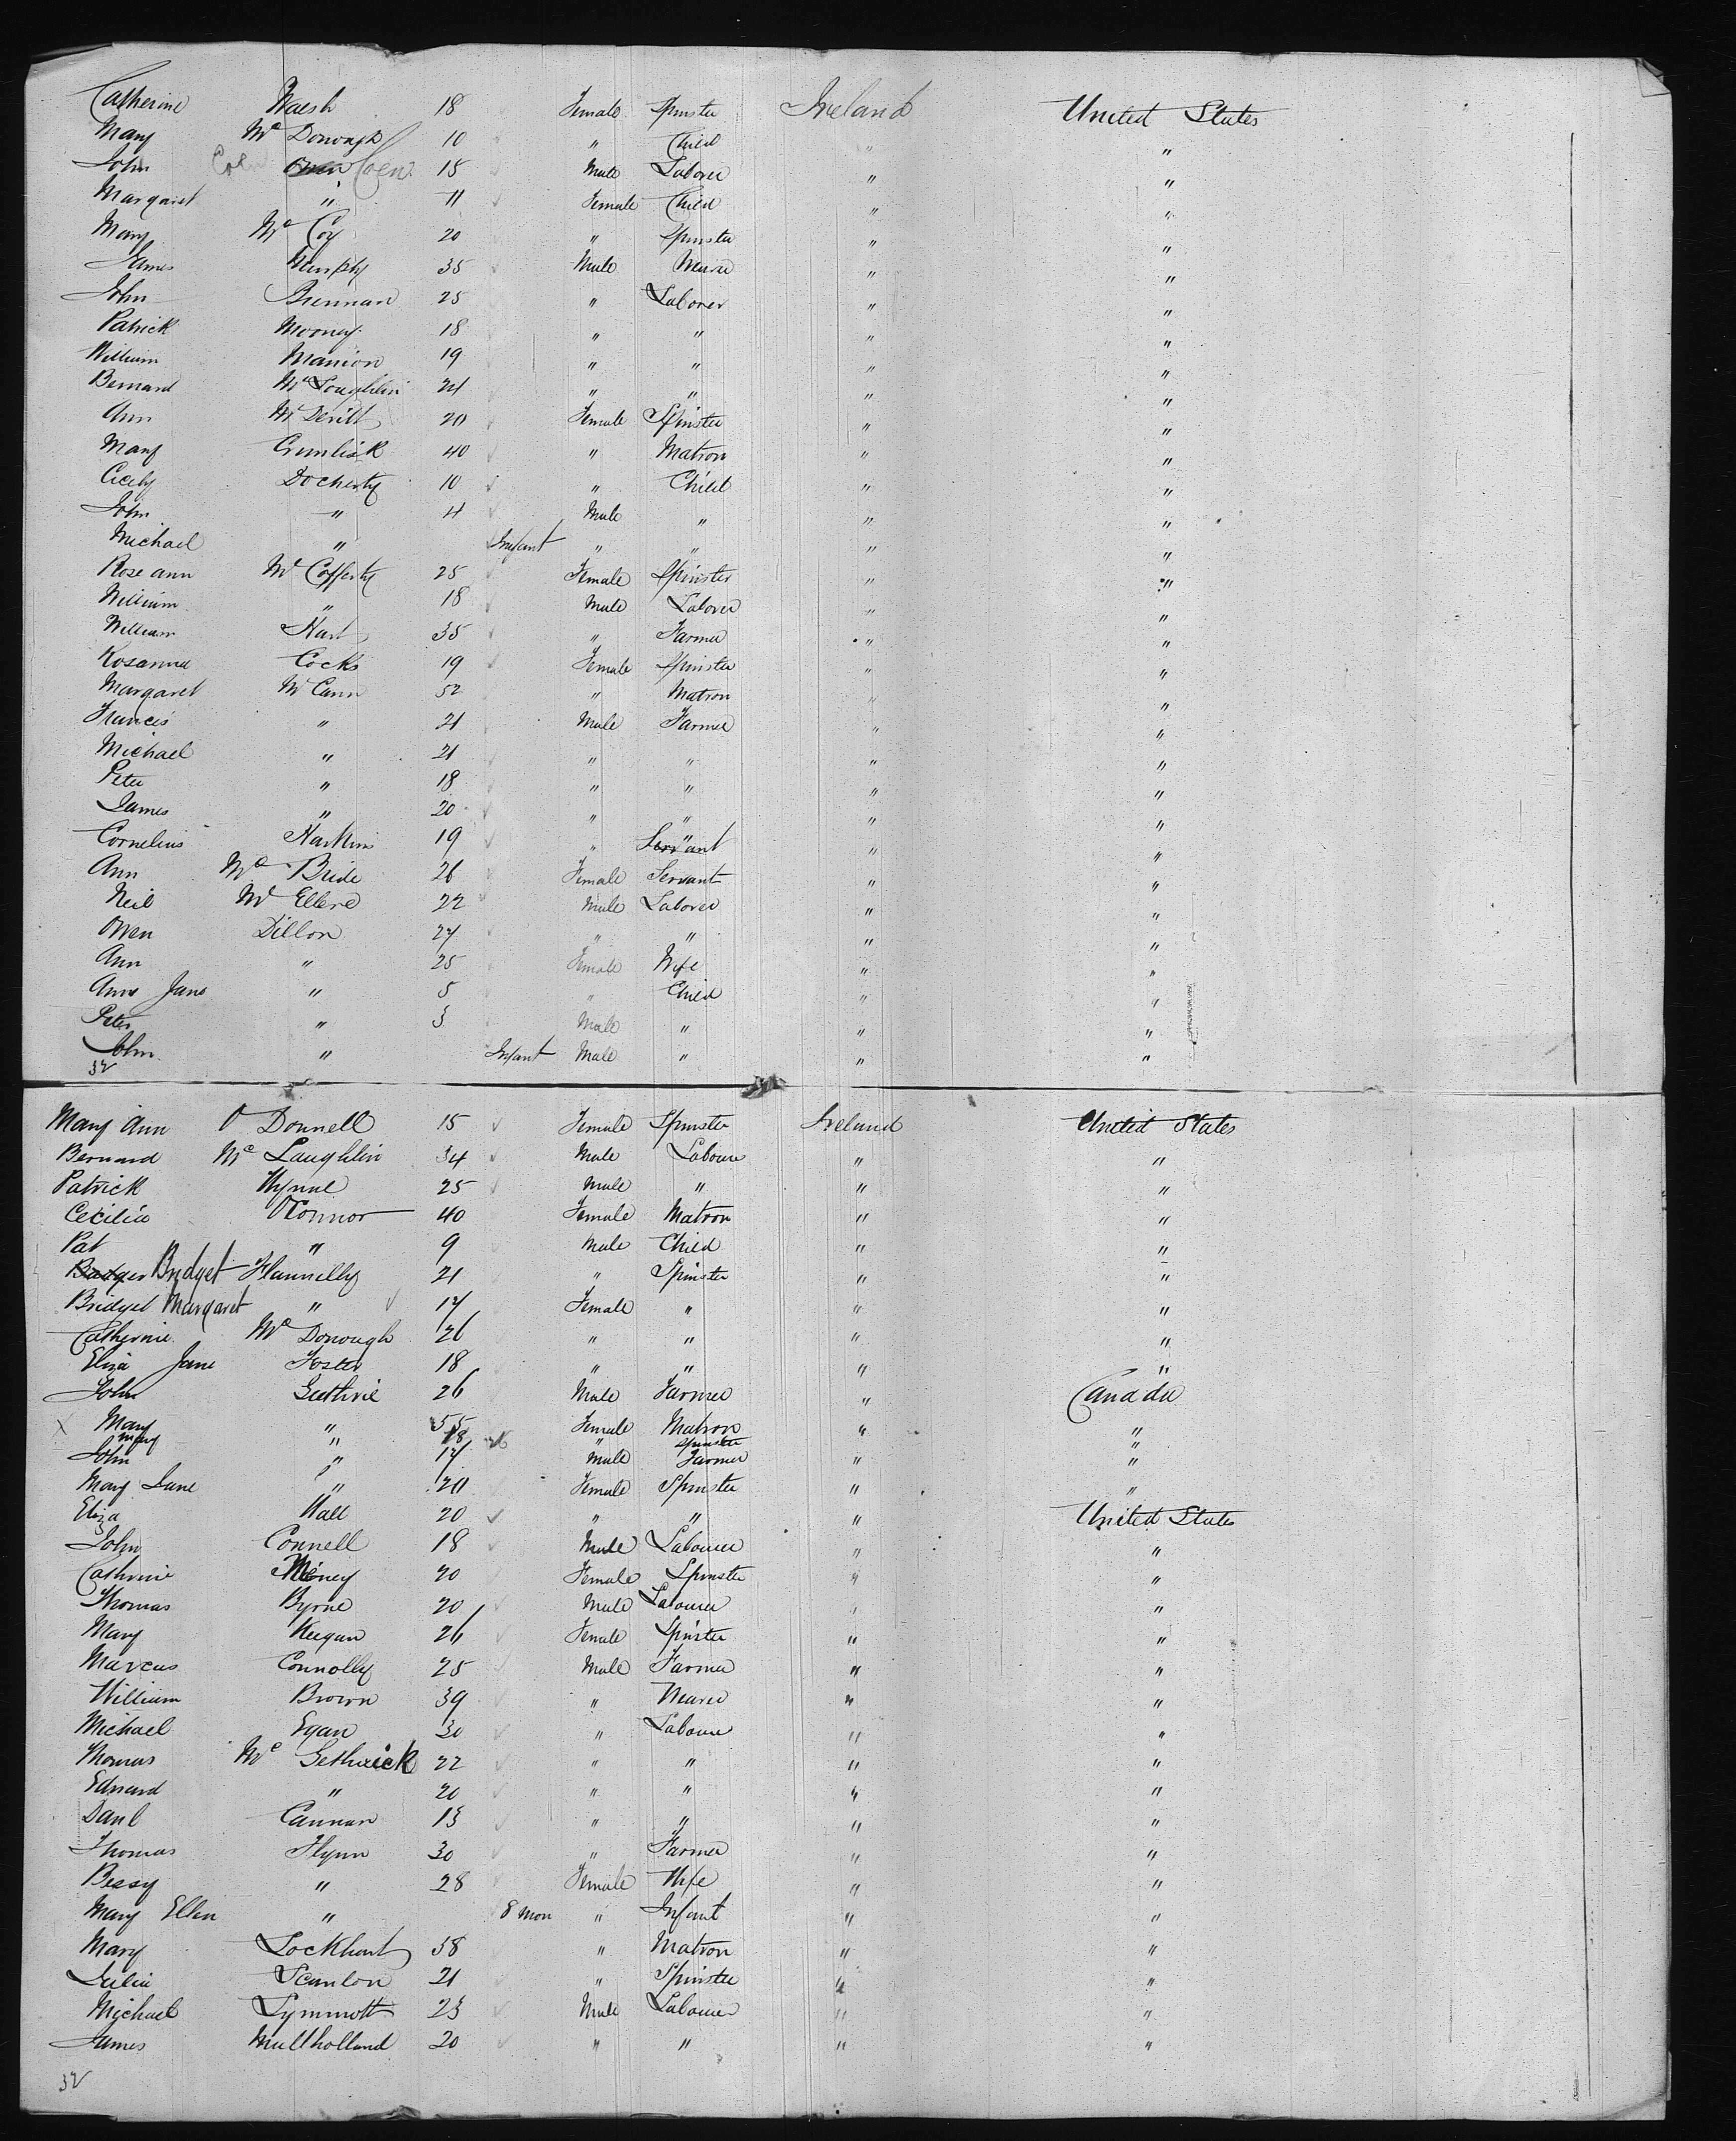 Catherine Walsh 18 Female Spinster Ireland United States
Mary Mc Donough 10 " Child " "
John Coen 15 Male Laborer " "
Margaret " 11 Female Child " "
Mary Mc Coy 20 " Spinster " "
James Murphy 35 Male Weaver " "
John Brennan 25 " Laborer " "
Patrick Mooney 18 " " " "
William Manion 19 " " " "
Bernard Mc Loughlin 21 " " " "
Ann Mc Devitt 20 Female Spinster " "
Mary Crumlisk 40 " Matron " "
Cicely Docherty 10 " Child " "
John " 4 Male " " "
Michael " Infant " " " "
Rose ann Mc Cafferty 25 Female Spinster " "
William " 18 Male Laborer " "
William Hart 35 " Farmer " "
Rosanna Cocks 19 Female Spinster " "
Margaret Mc Cann 52 " Matron " "
Francis " 21 Male Farmer " "
Michael " 21 " " " "
Peter " 18 " " " "
James " 20 " " " "
Cornelius Harkin 19 " " " "
Ann Mc Bride 26 Female Servant " "
Neil Mc Ellere 22 Male Laborer " "
Owen Dillon 27 " " " "
Ann " 25 Female Wife " "
Ann Jane " 5 " Child " "
Peter " 3 Male " " "
John " Infant Male " " "
32
Mary Ann O Donnell 15 Female Spinster Ireland United States
Bernard Mc Laughlin 34 Male Labourer " "
Patrick Wynne 25 Male " " "
Cecilia OConnor 40 Female Matron " "
Pat " 9 Male Child " "
Bridget Flannelly 21 " Spinster " "
Bridget Margaret " 17 Female " " "
Catherine Mc Donough 26 " " " "
Eliza Jane Foster 18 " " " "
John Guthrie 26 Male Farmer " Canada
X Mary " 55 Female Matron " "
Mary " 18 " Spinster "
John " 17 Male Farmer " "
Mary Jane " 20 Female Spinster " "
Eliza Wall 20 " " " United States
John Connell 18 Male Labourer " "
Cathrine 20 Female Spinster " "
Thomas Byrne 20 Male Labourer " "
Mary Keegan 26 Female Spinster " "
Marcus Connolly 25 Male Farmer " "
William Brown 39 " Weaver " "
Michael Egan 30 " Labourer " "
Thomas Mc 22 " " " "
Edward " 20 " " " "
Danl Cannan 13 " " " "
Thomas Flynn 30 " Farmer " "
Bessy " 28 Female Wife " "
Mary Ellen " 8 mon " Infant " "
Mary Lockhart 38 " Matron " "
Julia Scanlon 21 " Spinster " "
Michael Symmott 23 Male Labourer " "
James Mullholland 20 " " " "
32